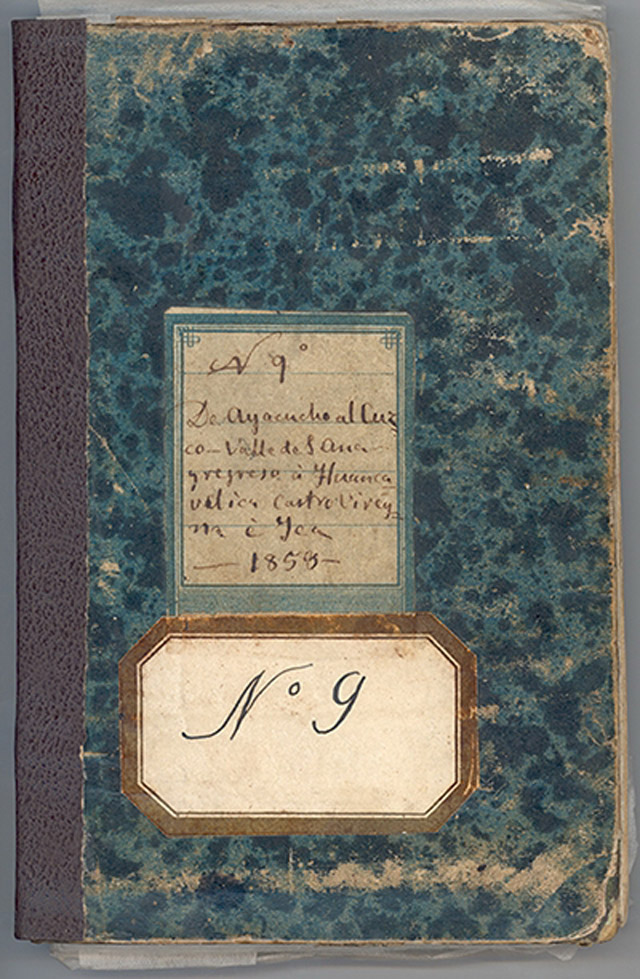 N 9°
De Ayacucho al Cuz
co - Valle de S Ana -
y regreso à Huanca
velica Castrovirey=
na è Ica
— 1858 —
N° 9